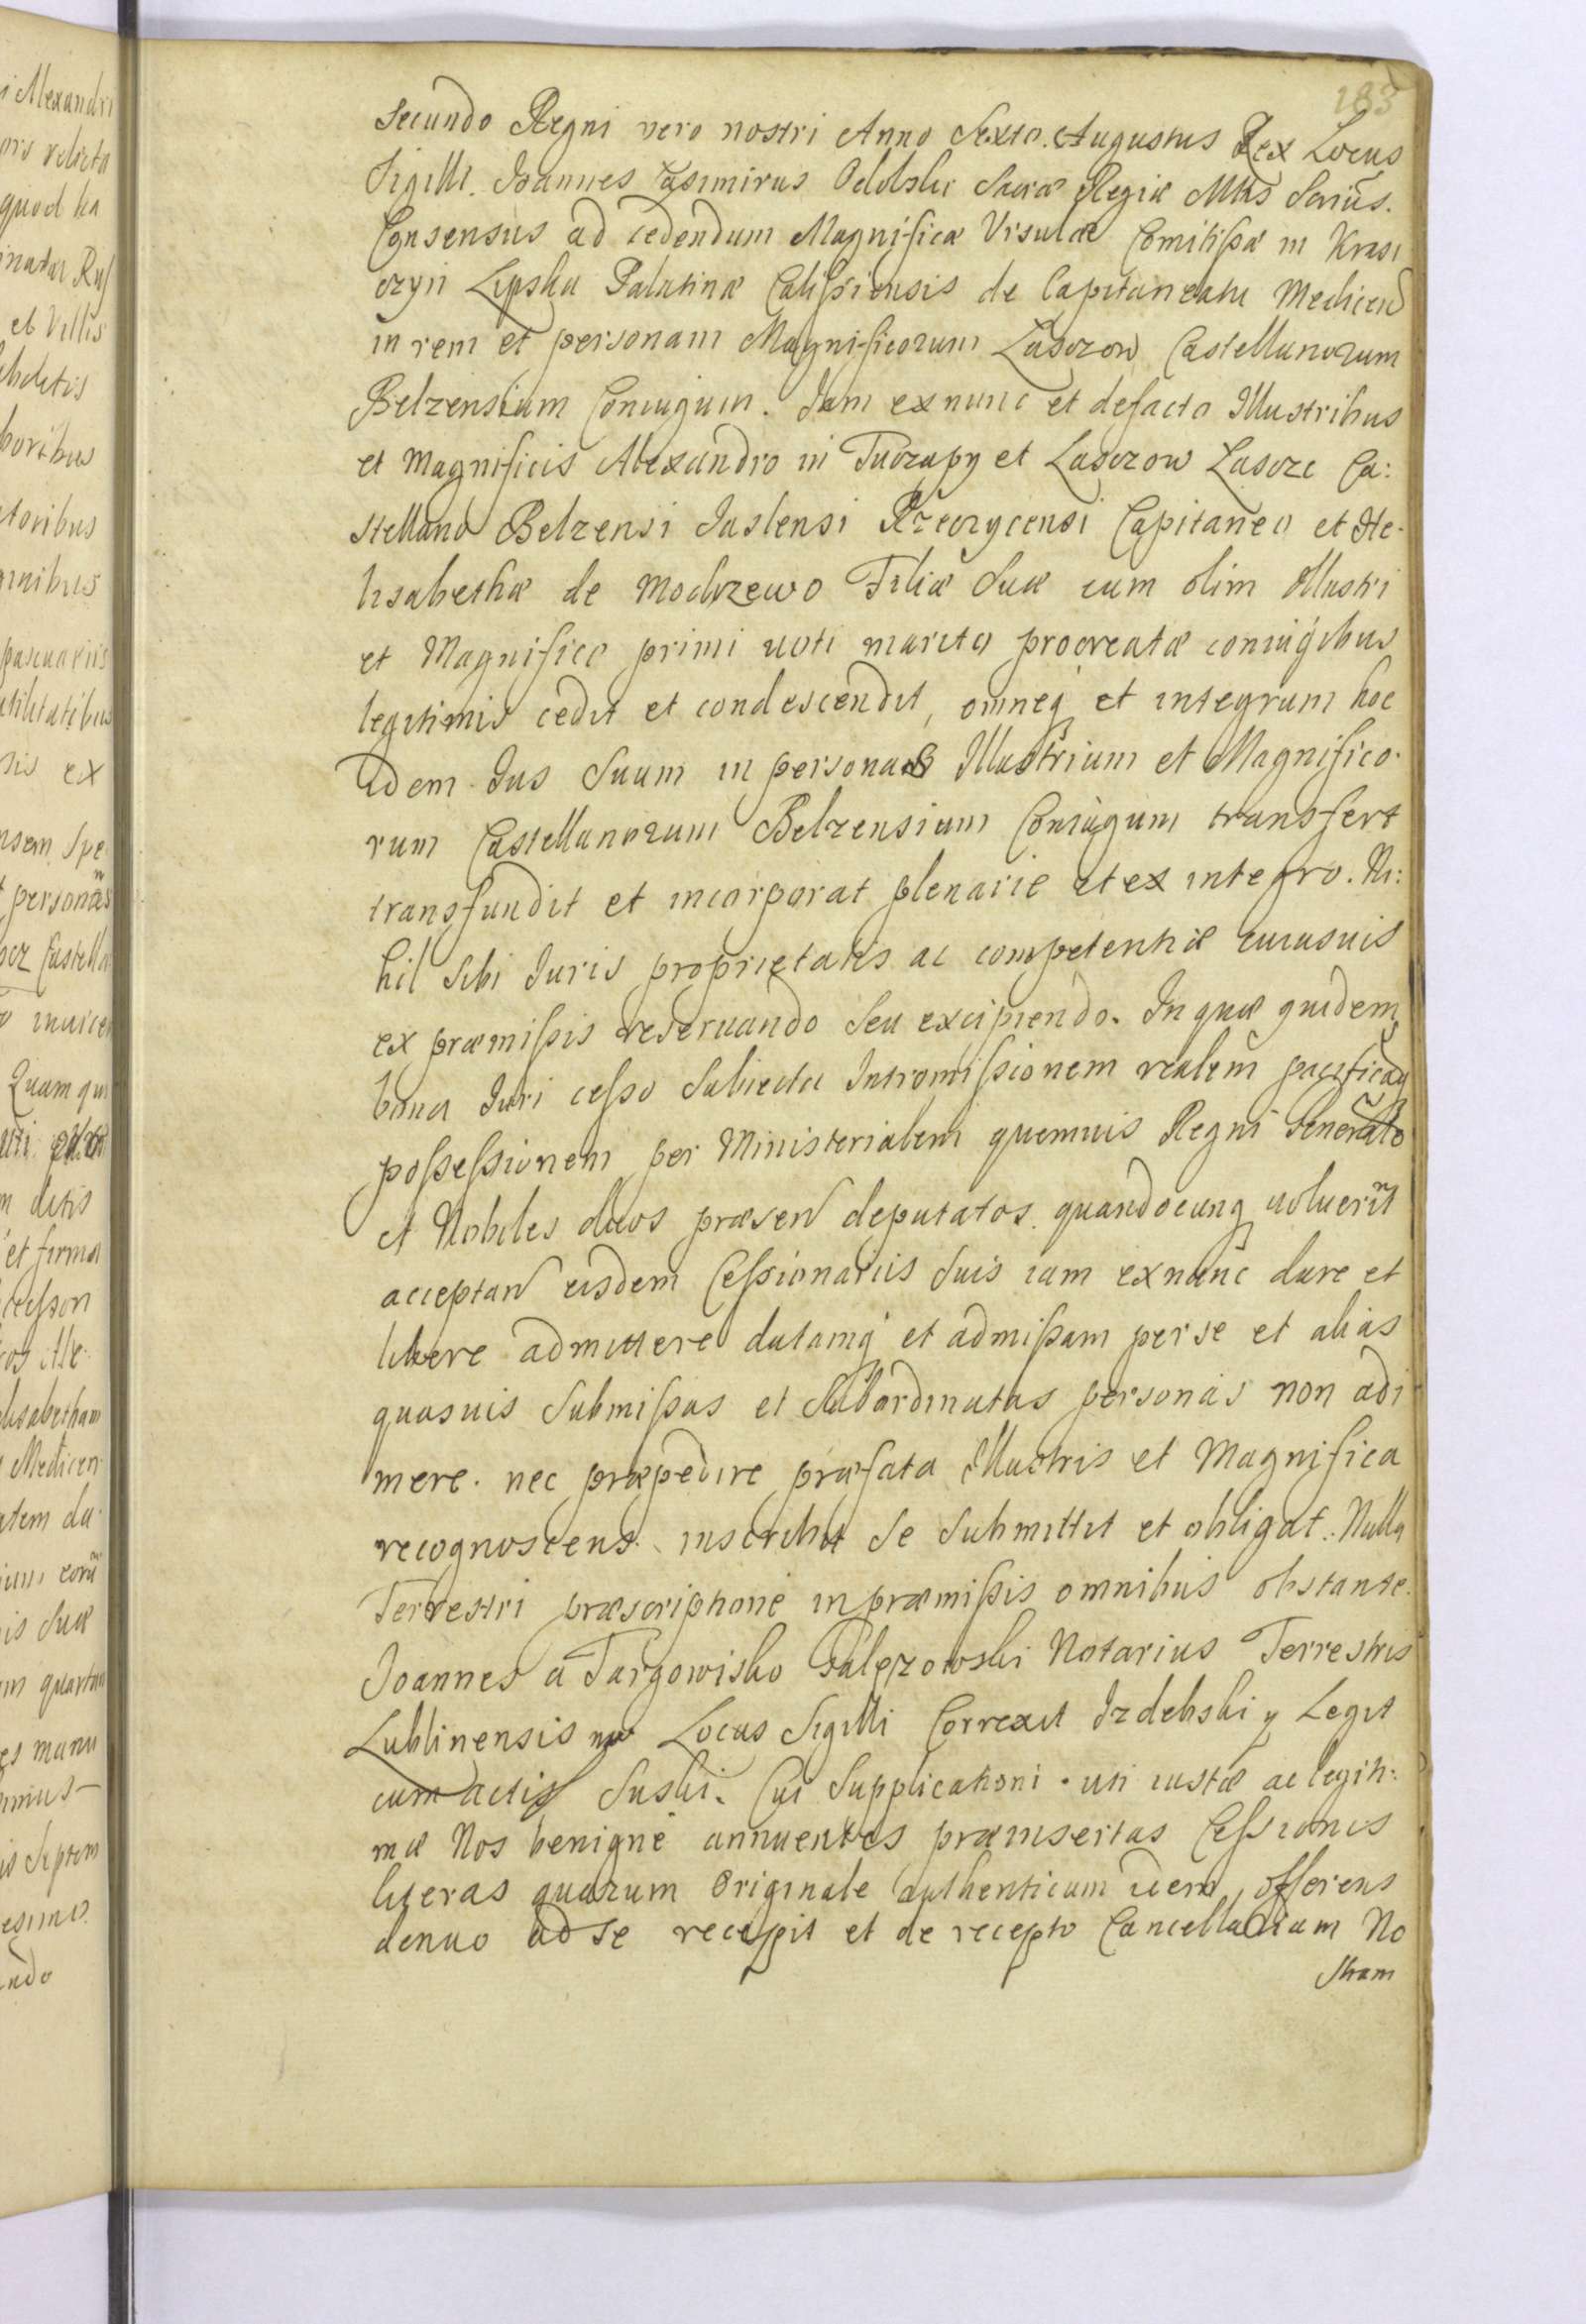 183
i Alexandri
quod ha
et Villis
boribus
toribus
pascuariis
utilitatibus
ex
personas
Quam qui
m dictis
et firma
Ale-
Medicen
sis Suæ
es manu
Septem
Secundo Regni vero nostri Anno Sexto. Augustus Rex Locus
Sigilli. Joannes Casimirus Sacræ Regiæ Mtis
Consensus ad cedendum Magnificæ Vrsulæ Comitißæ in Krasi
czyn Lipska Palatinæ Calißiensis de Capitaneatu Medicen
in rem et personam Magnificorum Łasczow Castellanorum
Belzensium Coniugum. Jam exnunc et defacto Illustribus
et Magnificis Alexandro in Tuczapy et Łasczow Łascz Ca:
stellano Belzensi Jaslensi Rzeczycensi Capitaneo et He-
lisabethæ de Modrzewo Filiæ Suæ cum olim Illustri
et Magnifico primi uoti marito procreatæ coniugibus
legitimis cedit et condescendit, omneq et integrum hoc
idem Jus Suum in personas Illustrium et Magnifico-
rum Castellanorum Belzensium Coniugum transfert
transfundit et incorporat plenarie et ex integro. Ni:
hil Sibi Juris proprietatis ac competentiæ cuiusuis
ex præmißis reseruando Seu excipiendo. In quæ quidem
bona Juri ceßo Subiecta Intromißionem realem pacificaq
poßeßionem per Ministerialem quemuis Regni Generale
et Nobiles duos præsen deputatos quandocunq uoluerit
acceptan eisdem Ceßionariis Suis iam exnunc dare et
libere admittere datamq et admißam per se et alias
quasuis Submißas et Subordinatas personas non adi
mere. nec præpedire præfata Illustris et Magnifica
recognoscens inscribit Se Submittit et obligat. Nulla
Terrestri præscriptione in præmißis omnibus obstante.
Joannes a Targowisko Gałęzowski Notarius Terrestris
Lublinensis mp Locus Sigilli Correxit Izdebski y Legit
cum actis Suski. Cui Supplicationi uti iustæ ac legiti:
mæ Nos benigne annuentes præinsertas Ceßionis
literas quarum Originale authenticum idem offerens
denuo ad se recepit et de recepto Cancellariam No
stram